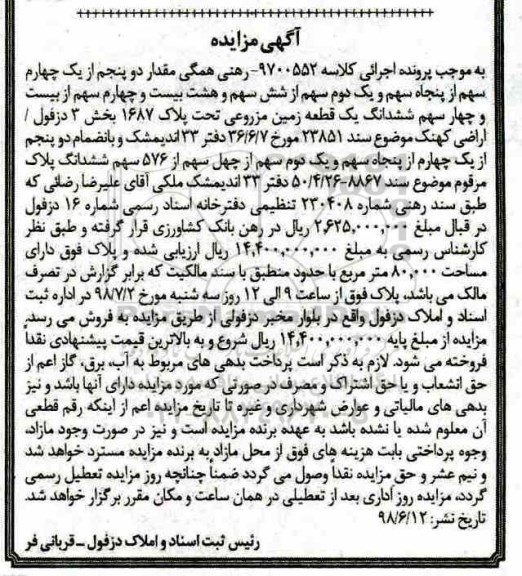 آگهی مزایده
به موجب پرونده اجرائی کلاسه ۹۷۰۰۵۵۲- رهنی همگی مقدار دو پنجم از یک چهارم
سهم از پنجاه سهم و یک دوم سهم از شش سهم و هشت بیست و چهارم سهم از بیست
و چهار سهم ششدانگ یک قطعه زمین مزروعی تحت پلاک ۱۶۸۷ بخش ۳ دزفول /
اراضی کهنک موضوع سند ۲۳۸۵۱ مورخ ۳۶/۶/۷ دفتر ۳۳ اندیمشک و بانضمام دو پنجم
از یک چهارم از پنجاه سهم و یک دوم سهم از چهل سهم از ۵۷۶ سهم ششدانگ پلاک
مرقوم موضوع سند ۸۸۶۷-۵۰/۴/۲۶ دفتر ۳۳ اندیمشک ملکی آقای علیرضا رضائی که
طبق سند رهنی شماره ۲۳۰۴۰۸ تنظیمی دفترخانه اسناد رسمی شماره ۱۶ دزفول
در قبال مبلغ ۲,۶۲۵,۰۰۰,۰۰۰ ریال در رهن بانک کشاورزی قرار گرفته و طبق نظر
کارشناس رسمی به مبلغ ۱۴,۴۰۰,۰۰۰,۰۰۰ ریال ارزیابی شده و پلاک فوق دارای
مساحت ۸۰,۰۰۰ متر مربع با حدود منطبق با سند مالکیت که برابر گزارش در تصرف
مالک می باشد، پلاک فوق از ساعت ۹ الی ۱۲ روز سه شنبه مورخ ۹۸/۷/۲ در اداره ثبت
اسناد و املاک دزفول واقع در بلوار مخبر دزفولی از طریق مزایده به فروش می رسد.
مزایده از مبلغ پایه ۱۴,۴۰۰,۰۰۰,۰۰۰ ریال شروع و به بالاترین قیمت پیشنهادی نقداً
فروخته می شود. لازم به ذکر است پرداخت بدهی های مربوط به آب، برق، گاز اعم از
حق انشعاب و یا حق اشتراک و مصرف در صورتی که مورد مزایده دارای آنها باشد و نیز
بدهی های مالیاتی و عوارض شهرداری و غیره تا تاریخ مزایده اعم از اینکه رقم قطعی
آن معلوم شده یا نشده باشد به عهده برنده مزایده است و نیز در صورت وجود مازاد،
وجوه پرداختی بابت هزینه های فوق از محل مازاد به برنده مزایده مسترد خواهد شد
و نیم عشر و حق مزایده نقداً وصول می گردد ضمناً چنانچه روز مزایده تعطیل رسمی
گردد، مزایده روز اداری بعد از تعطیلی در همان ساعت و مکان مقرر برگزار خواهد شد.
تاریخ نشر: ۹۸/۶/۱۲
رئیس ثبت اسناد و املاک دزفول - قربانی فر